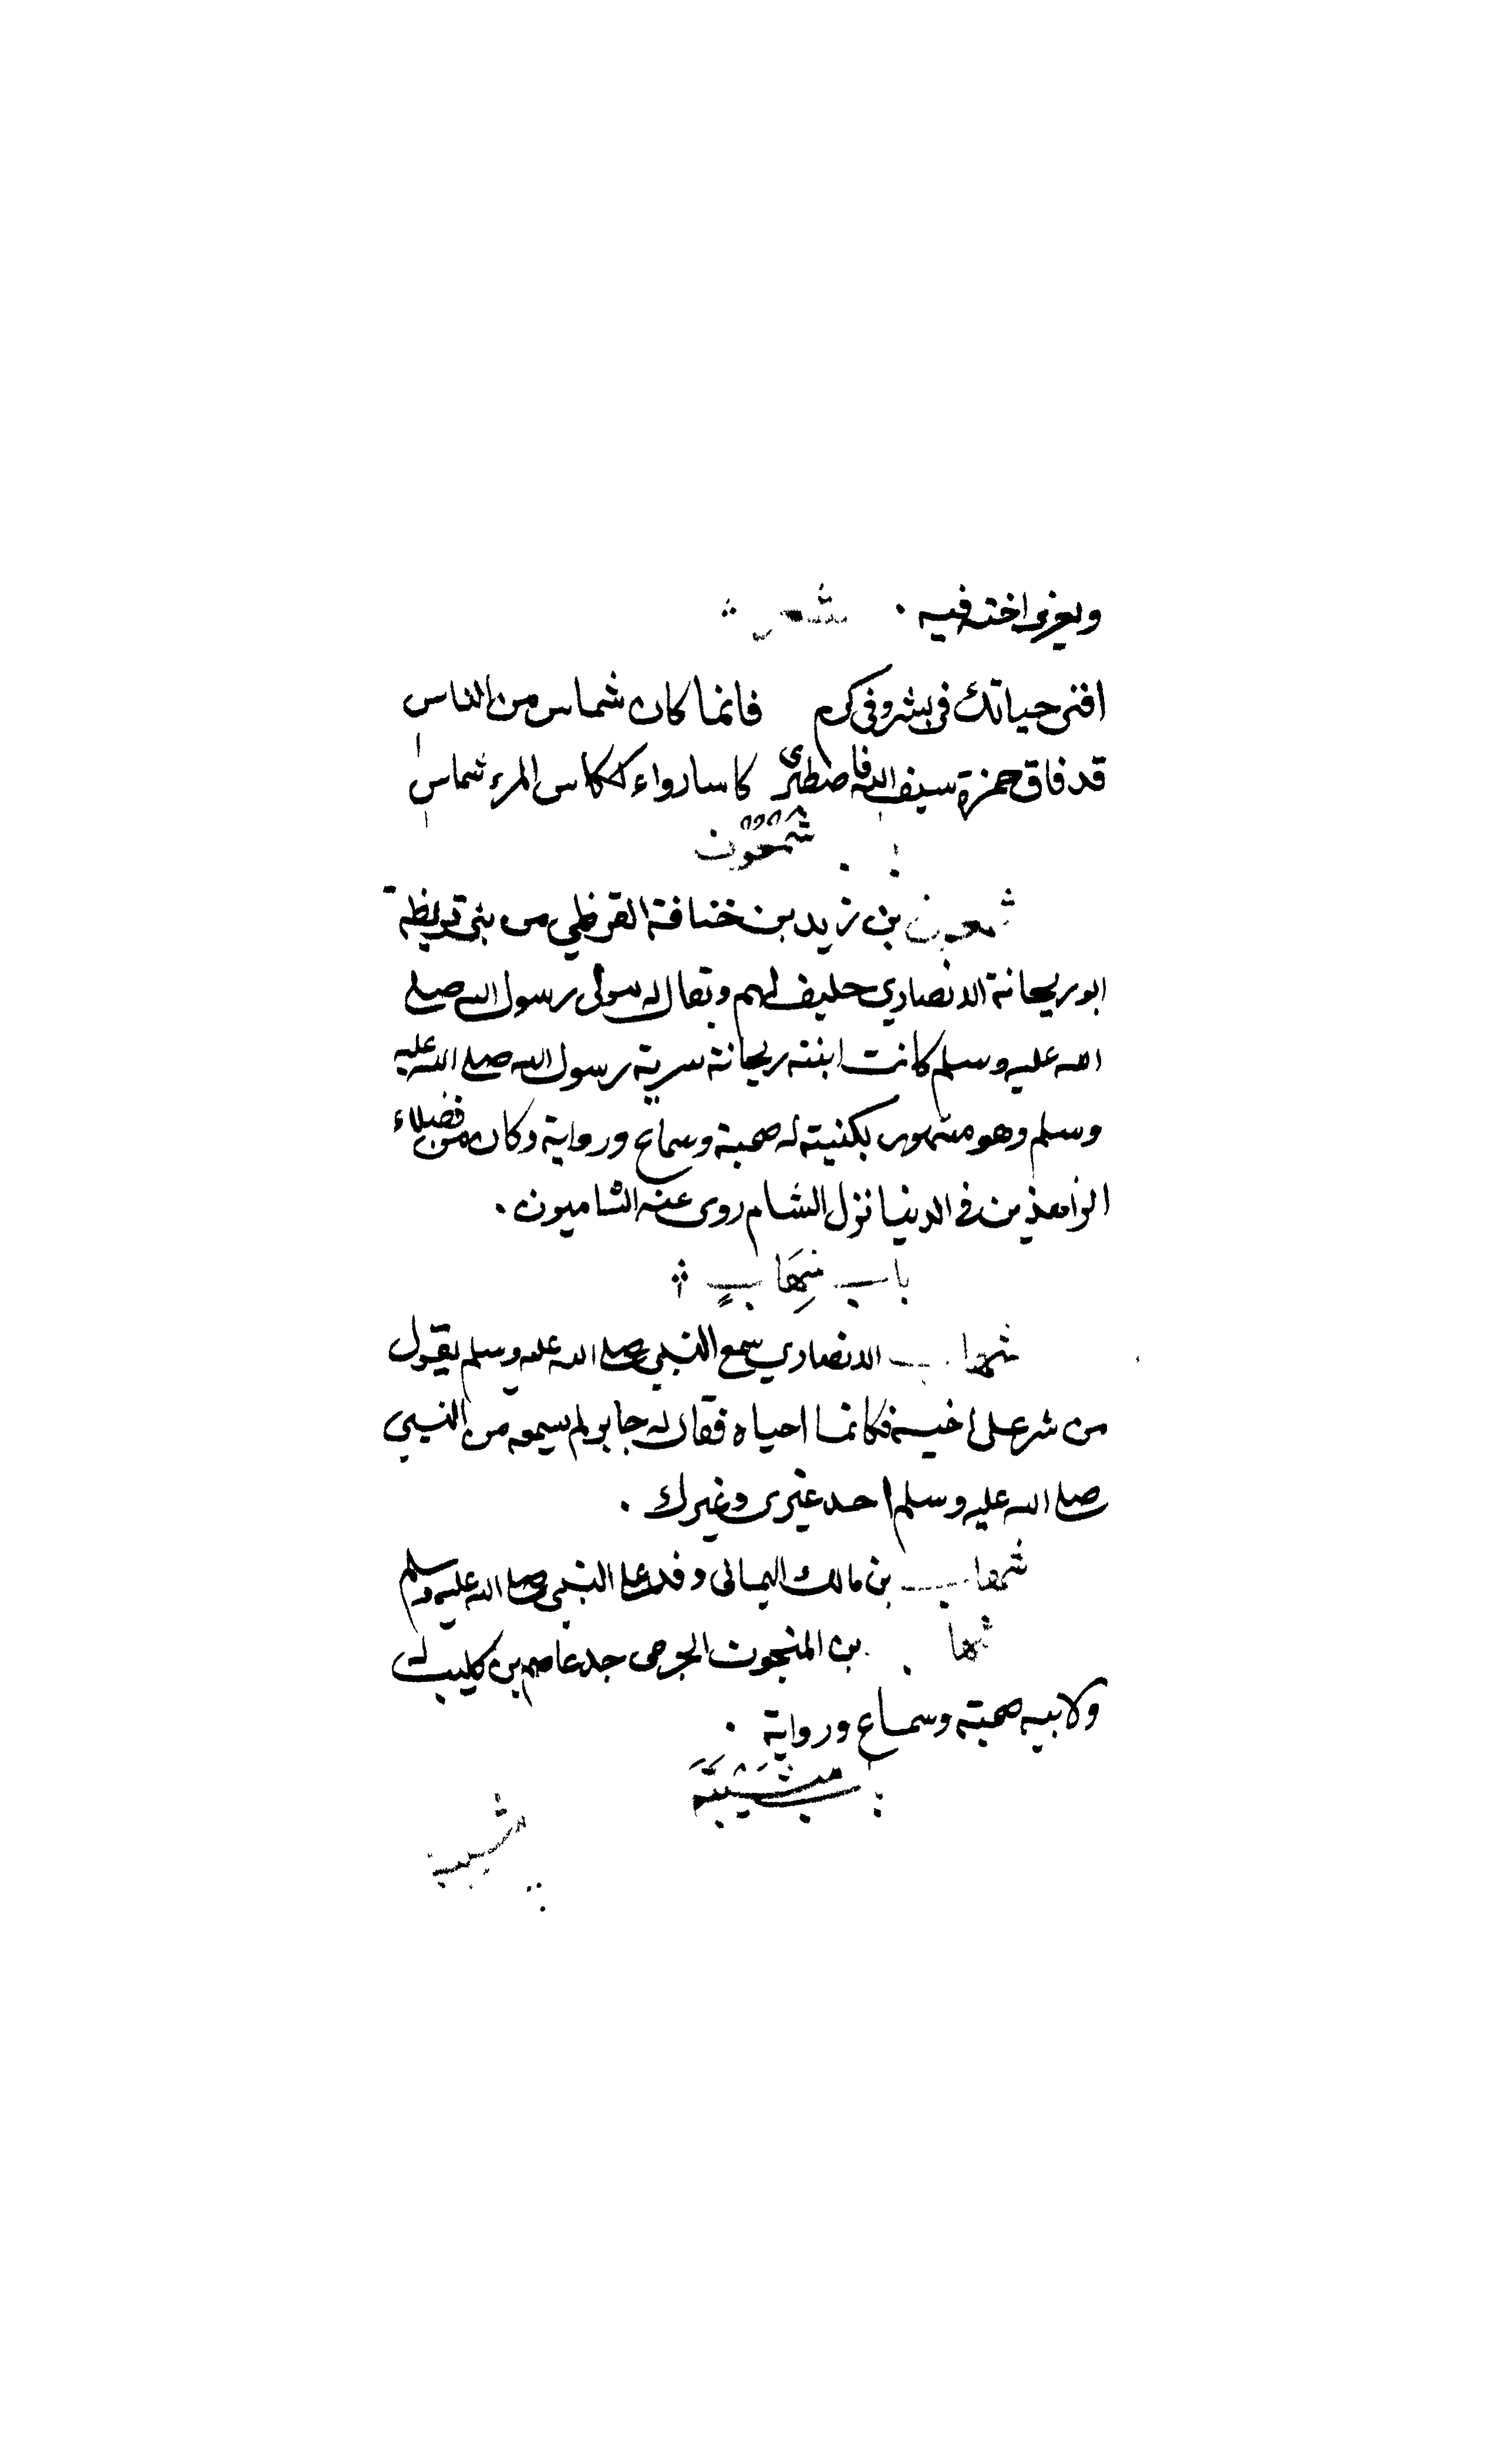 ويعزي اخته فيه . شعر
افنى حياتك في بشر وفي كرم فانما كان شماس من الناس
قد فاق حمزة سيف الله فاصطبرى كاسا رواء ككاس المرء شماس
شمعون
شمعون بن زيد بن خنافة القرظي من بني قريظة
ابو ريحانة الانصاري حليف لهم ويقال له مولى رسول الله صلى
الله عليه وسلم كانت ابنته ريحانة سرية رسول الله صلى الله عليه
وسلم وهو مشهور بكنيته له صحبة وسماع ورواية وكان من فضلاء
الزاهدين في الدنيا نزل الشام روى عنه الشاميون .
باب شِهَابٍ
شهاب الانصاري سمع النبي صلى الله عليه وسلم يقول
من ستر على اخيه فكانما احياه فقال له جابر لم يسمعه من النبي
صلى الله عليه وسلم احد غيرى وغيرك .
شهاب بن مالك اليمانى وفد على النبي صلى الله عليه وسلم
شهاب بن المنجون الجرمى جد عاصم بن كليب له
ولابيه صحبة وسماع ورواية .
باب شَيْبَة
شيبة